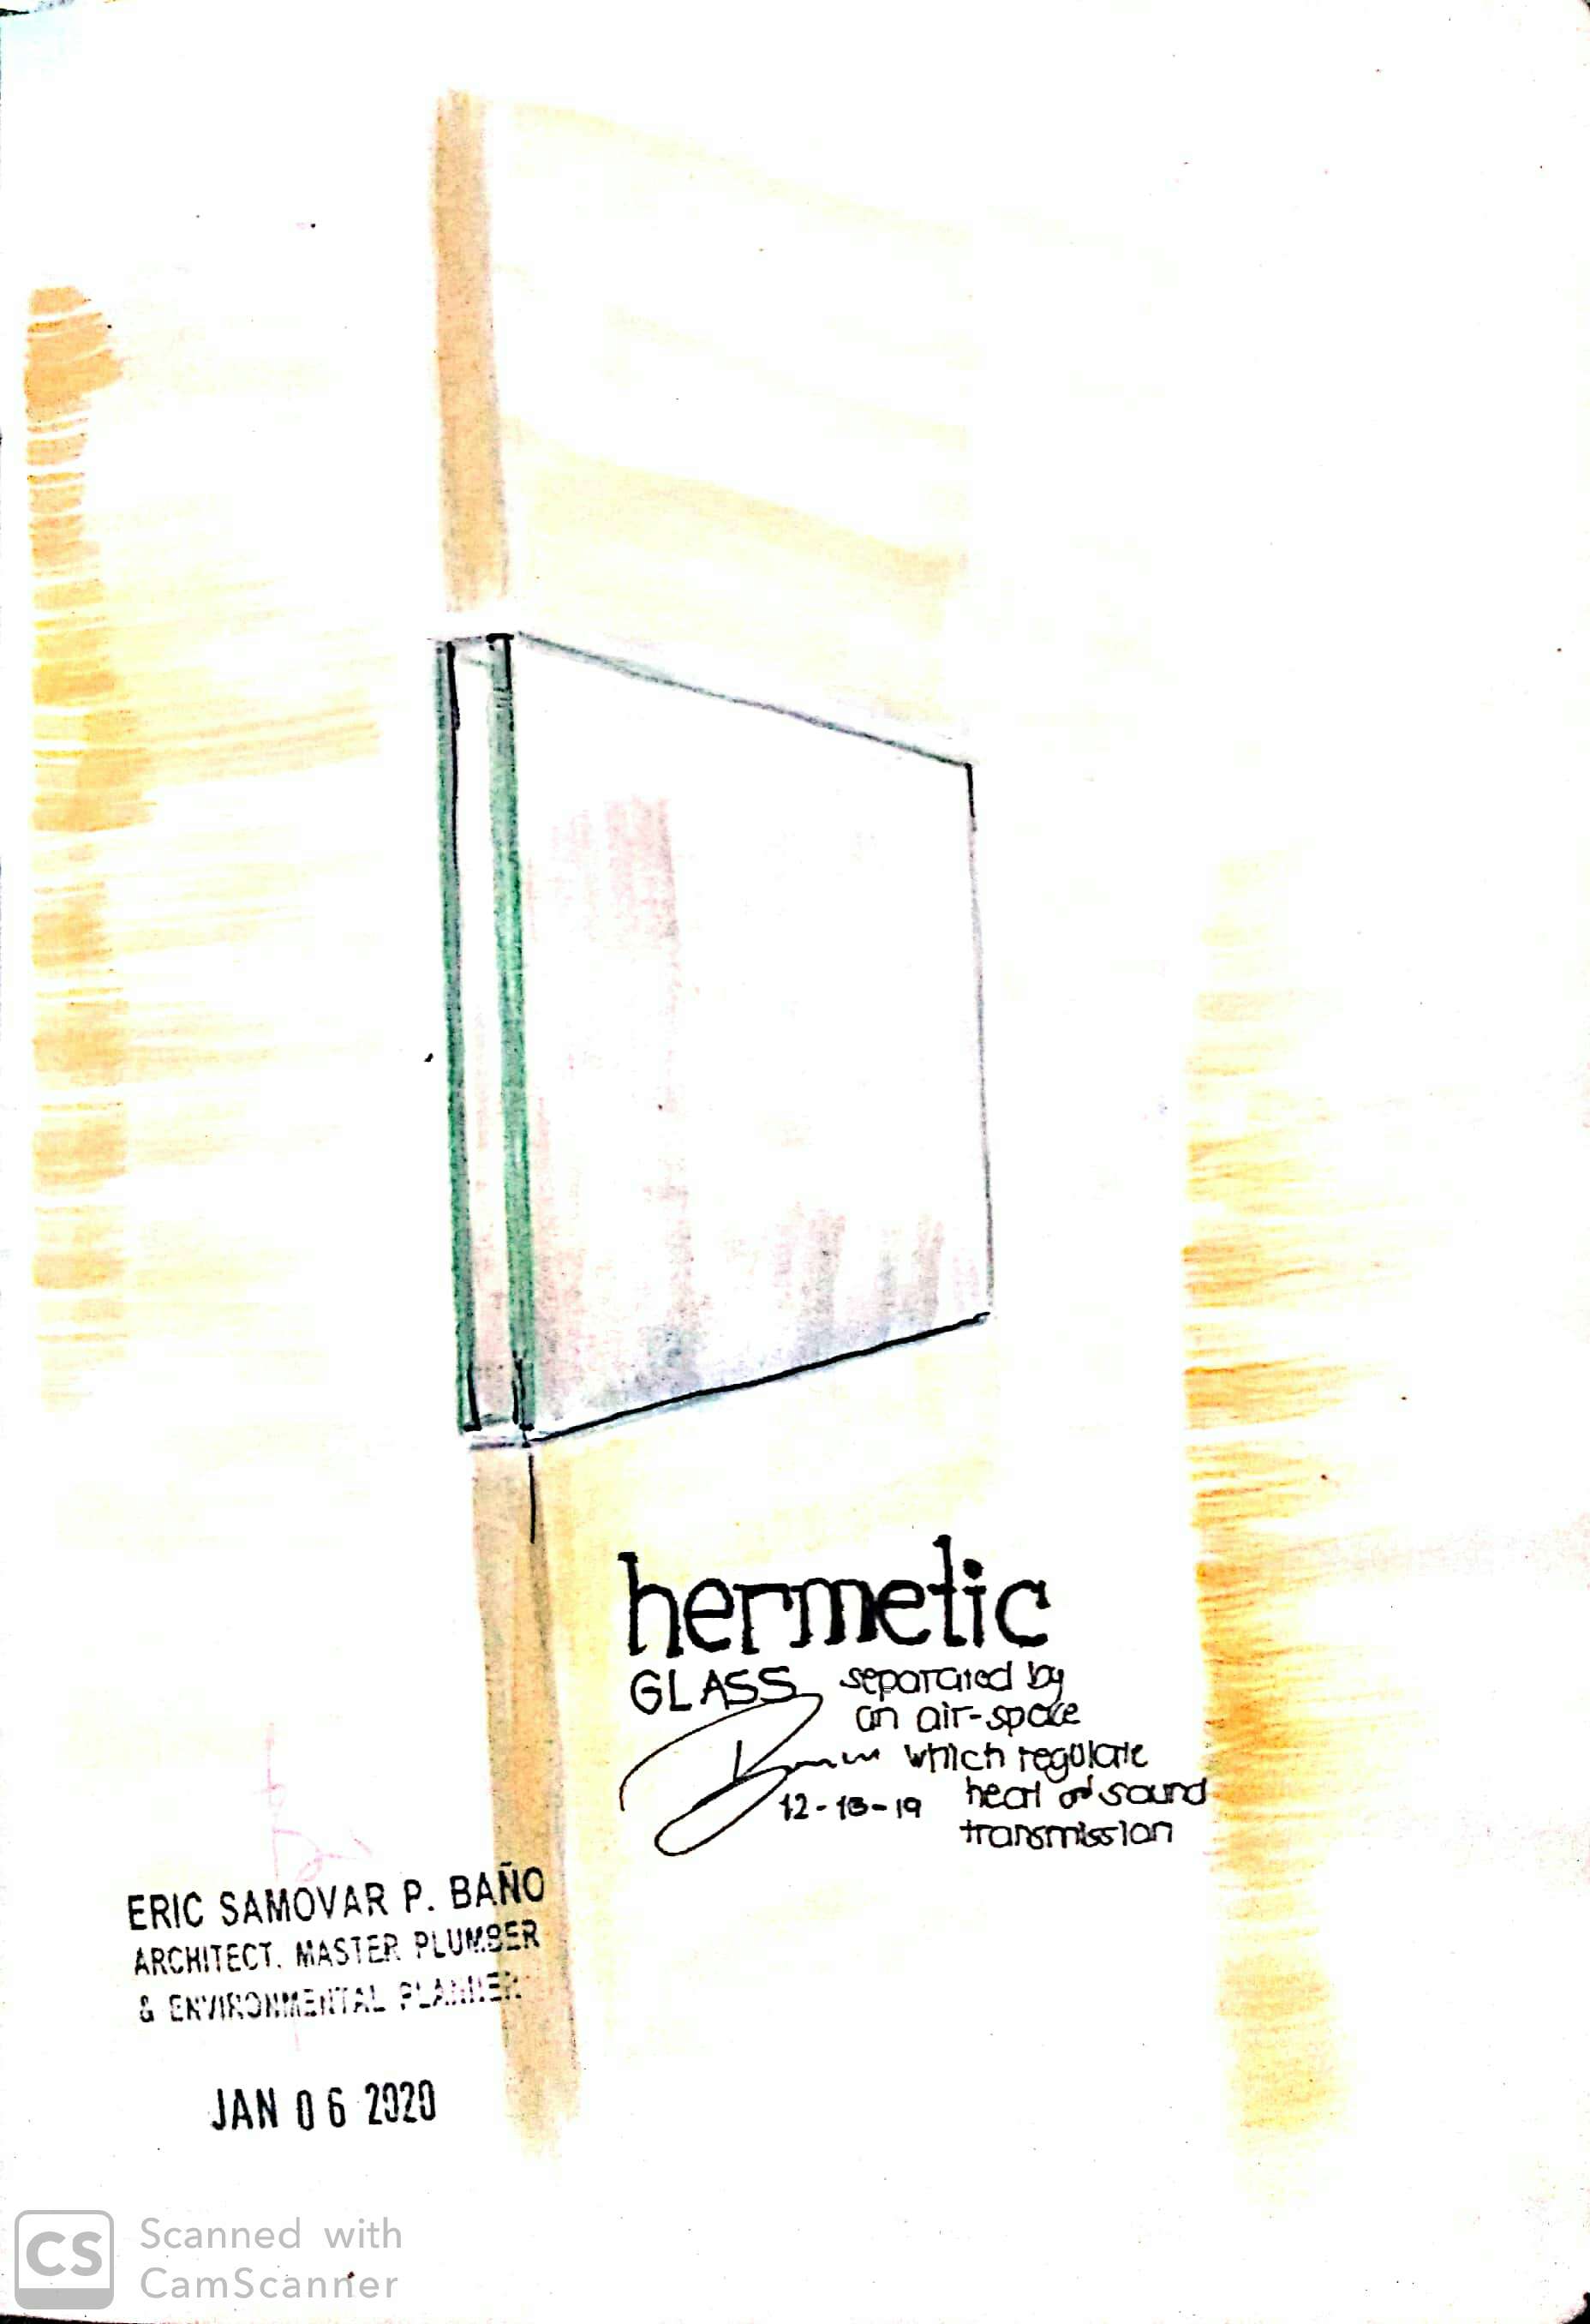 hermetic
GLASS separated by
an air-space
which regulate
12-13-19 heat and sound
transmission
ERIC SAMOVAR P. BAÑO
ARCHITECT, MASTER PLUMBER
& ENVIRONMENTAL PLANNER
JAN 06 2020
CS Scanned with
CamScanner